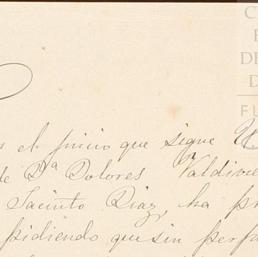 el juicio que sigue
de Dª Dolores Valdivie
Jacinto Diaz, ha pr
pidiendo que sin perju